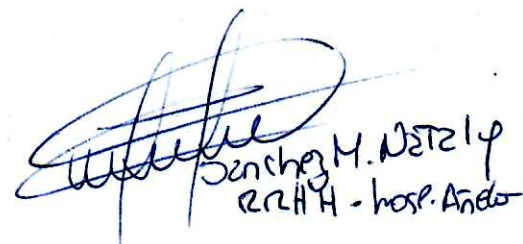 Sanchez M. Nataly
RRHH - hosp. Andes